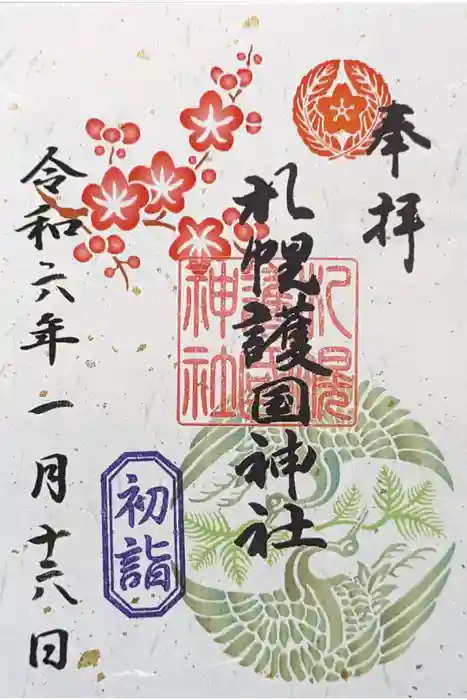 奉拝
札幌護国神社
札幌
護国
神社
初詣
令和六年一月十六日